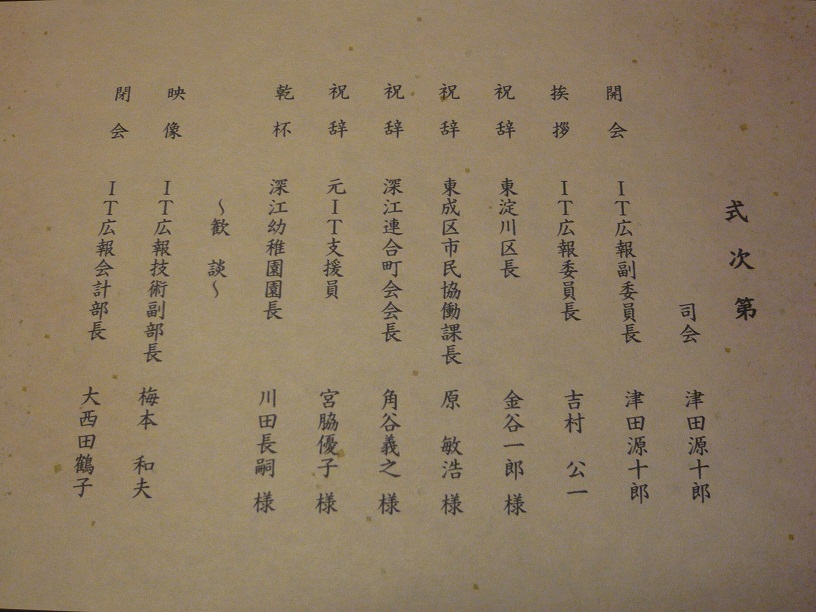 式次第
司会 津田源十郎
開会 IT広報副委員長 津田源十郎
挨拶 IT広報委員長 吉村 公一
祝辞 東淀川区長 金谷一郎 様
祝辞 東成区市民協働課長 原 敏浩 様
祝辞 深江連合町会会長 角谷義之 様
祝辞 元IT支援員 宮脇優子 様
乾杯 深江幼稚園園長 川田長嗣 様
～歓談～
映像 IT広報技術副部長 梅本 和夫
閉会 IT広報会計部長 大西田鶴子